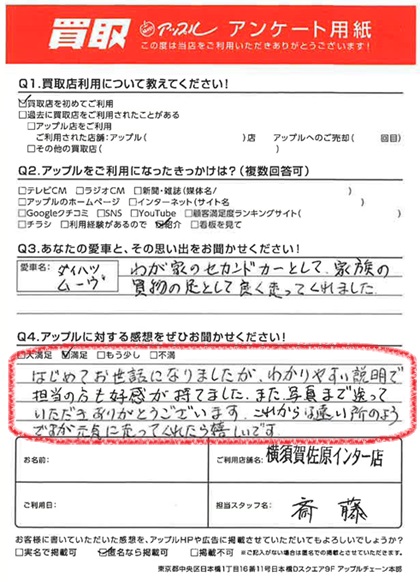 買取 アップル アンケート用紙
この度は当店をご利用いただきありがとうございます!
Q1.買取店利用について教えてください!
☑買取店を初めてご利用
□過去に買取店をご利用されたことがある
□アップル店をご利用
ご利用された店舗:アップル( )店 アップルへのご売却( 回目)
□その他の買取店( )
Q2.アップルをご利用になったきっかけは?(複数回答可)
□テレビCM □ラジオCM □新聞・雑誌(媒体名/ )
□アップルのホームページ □インターネット(サイト名 )
□Googleクチコミ □SNS □YouTube □顧客満足度ランキングサイト( )
□チラシ □利用経験があるので ☑紹介 □看板を見て
Q3.あなたの愛車と、その思い出をお聞かせください!
愛車名: ダイハツ ムーヴ
わが家のセカンドカーとして、家族の
買物の足として良く走ってくれました。
Q4.アップルに対する感想をぜひお聞かせください!
□大満足 ☑満足 □もう少し □不満
はじめてお世話になりましたが、わかりやすい説明で
担当の方も好感が持てました。また、写真まで送って
いただきありがとうございます。これからは遠い所のよう
ですが元気に走ってくれたら嬉しいです
お名前:
ご利用店舗名: 横須賀佐原インター店
ご利用日:
担当スタッフ名: 斎藤
お客様に書いていただいた感想を、アップルHPや広告に掲載させていただいてもよろしいでしょうか?
□実名で掲載可 ☑匿名なら掲載可 □掲載不可 ※ご記入がない場合は匿名での掲載とさせていただきます。
東京都中央区日本橋1丁目16番11号日本橋Dスクエア9F アップルチェーン本部